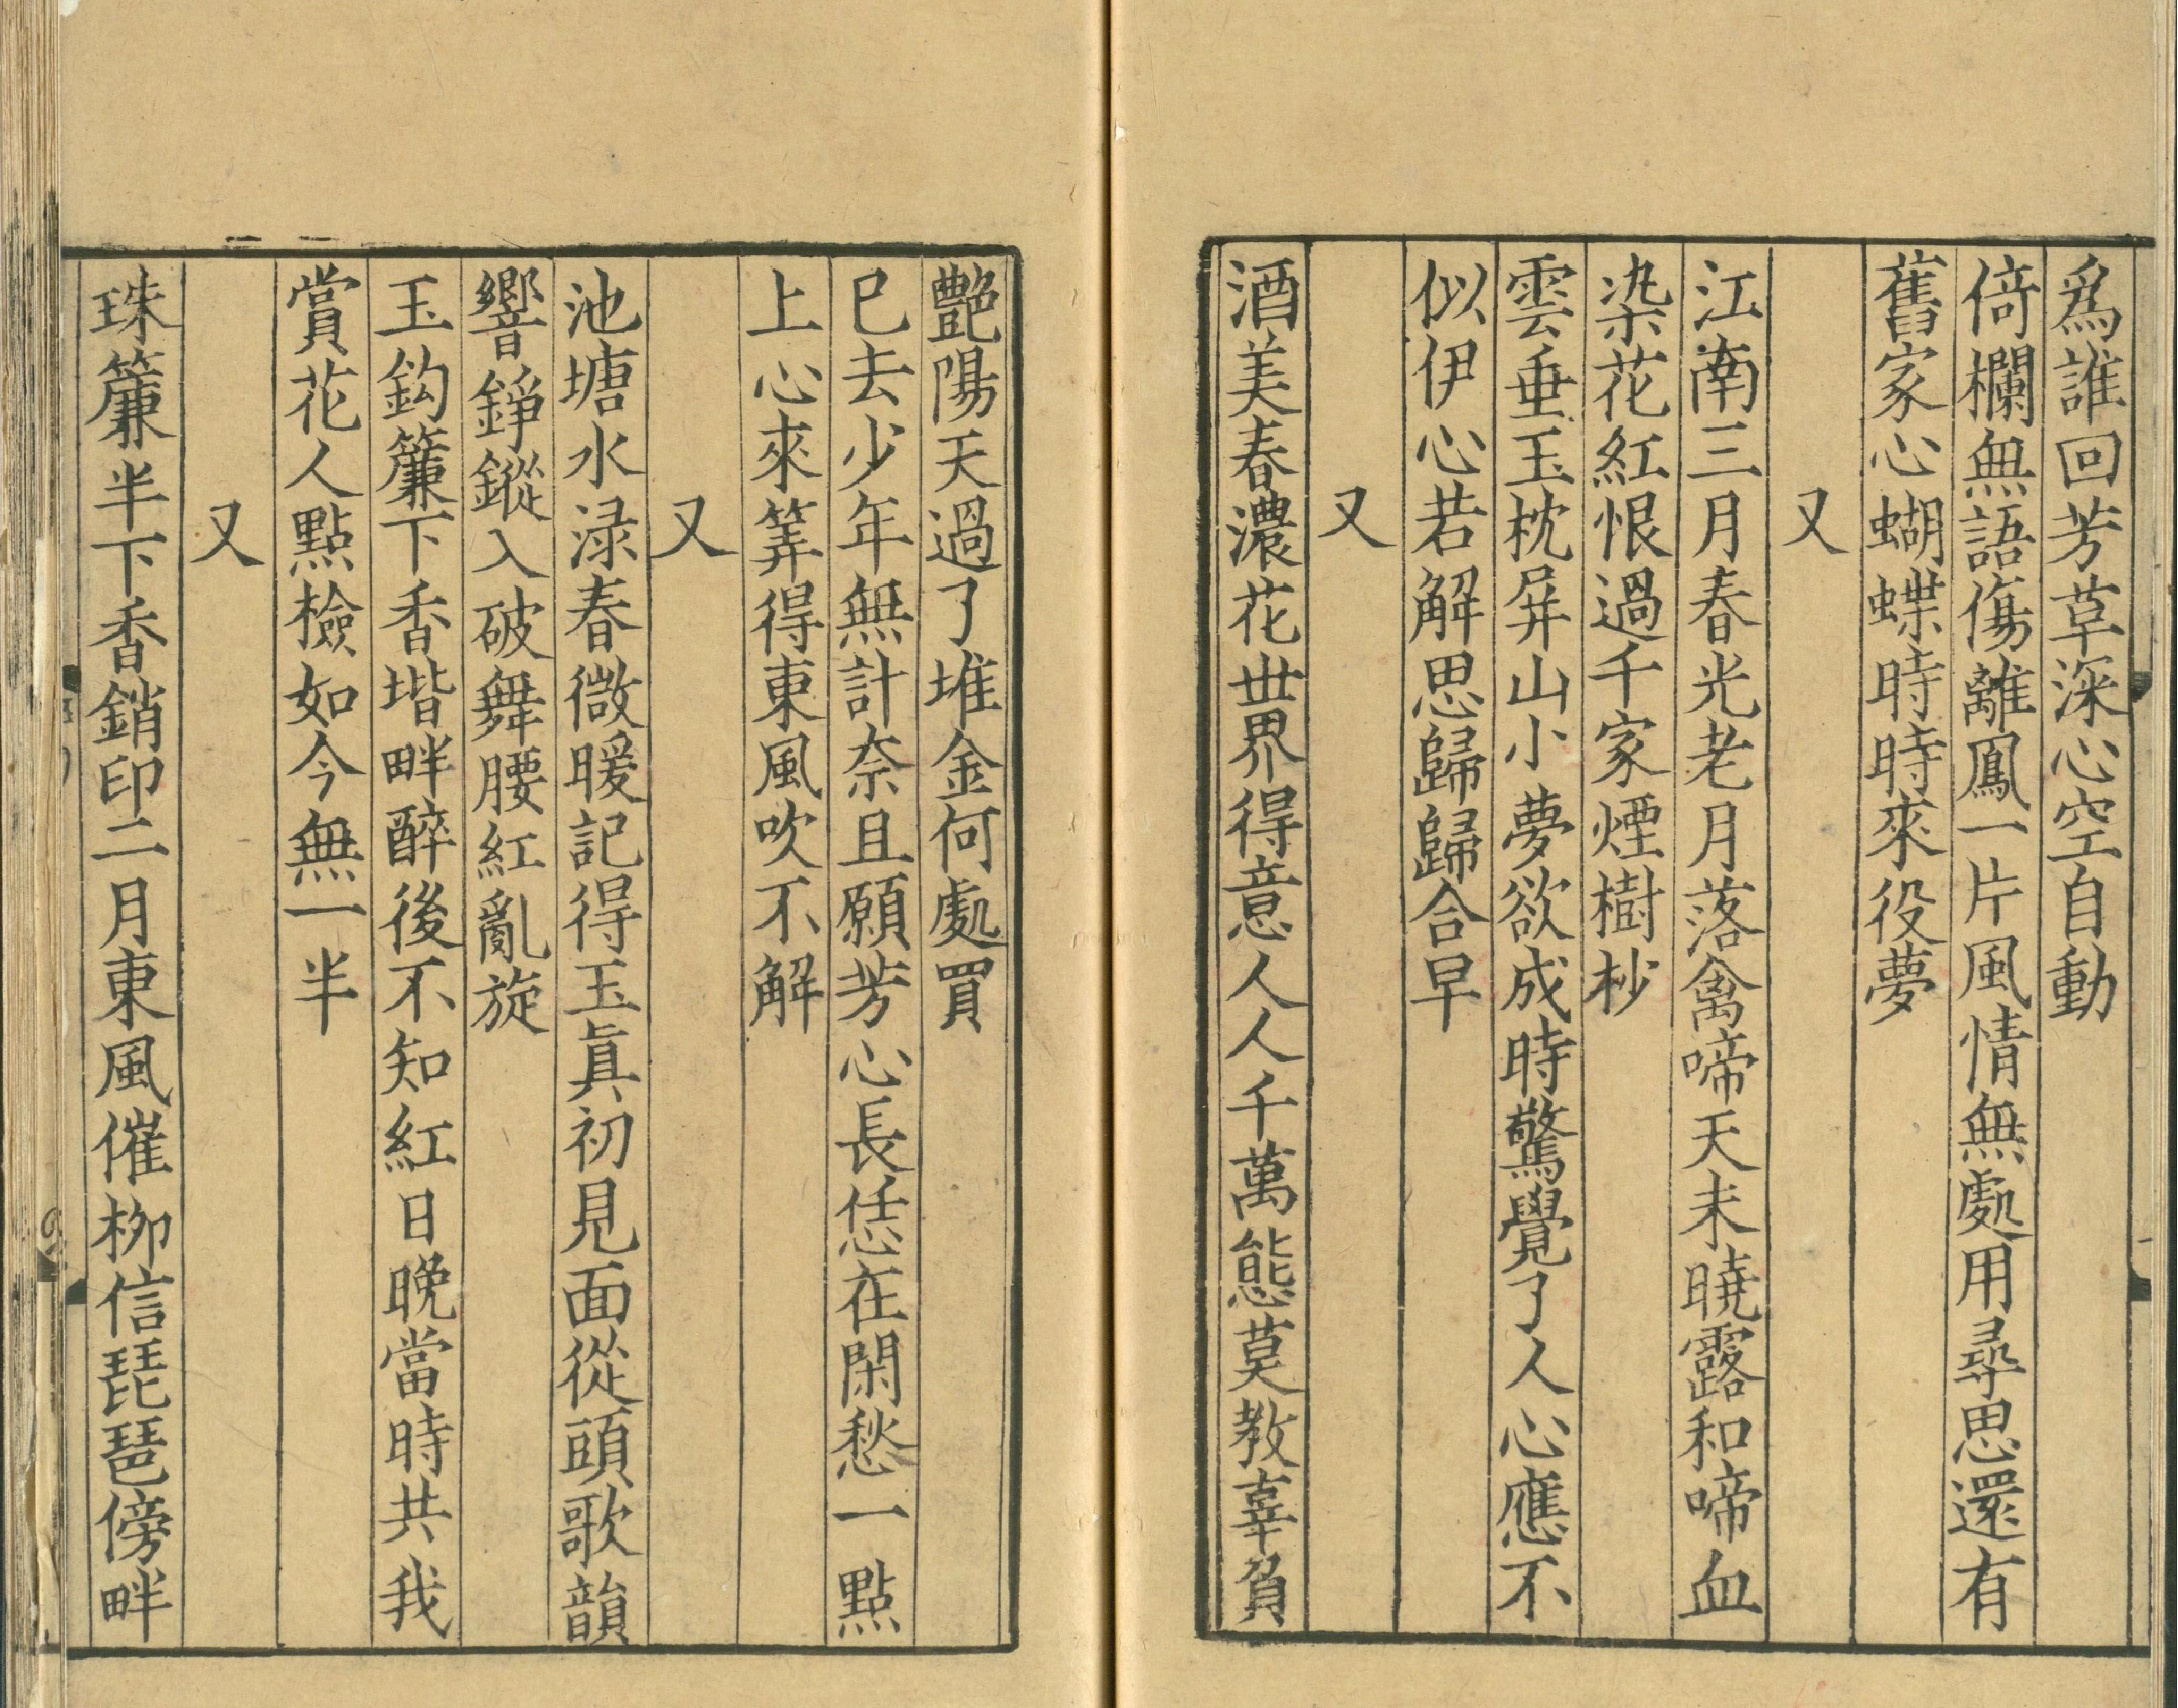 爲誰回芳草深心空自動
倚欄無語傷離鳳一片風情無處用尋思還有
舊家心蝴蝶時時來役夢
又
江南三月春光老月落禽啼天未曉露和啼血
染花紅恨過千家煙樹杪
雲垂玉枕屏山小夢欲成時驚覺了人心應不
似伊心若解思歸歸合早
又
酒美春濃花世界得意人人千萬態莫教辜負
艷陽天過了堆金何處買
已去少年無計奈且願芳心長恁在閑愁一點
上心來筭得東風吹不解
又
池塘水淥春微暖記得玉眞初見面從頭歌韻
響錚鏦入破舞腰紅亂旋
玉鈎簾下香堦畔醉後不知紅日晚當時共我
賞花人點檢如今無一半
又
珠簾半下香銷印二月東風催柳信琵琶傍畔